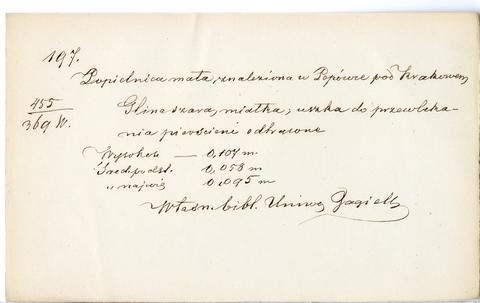 197.
Popielnica mała, znaleziona w Popówce pod Krakowem,
455
369 W.
Glina szara, miałka, uszka do przewleka-
nia pierścieni odtrącone
Wysokość — 0,107 m.
Śred. podst. 0,058 m
„ najwię 0,095 m
Własn. bibl. Uniw. Jagiell